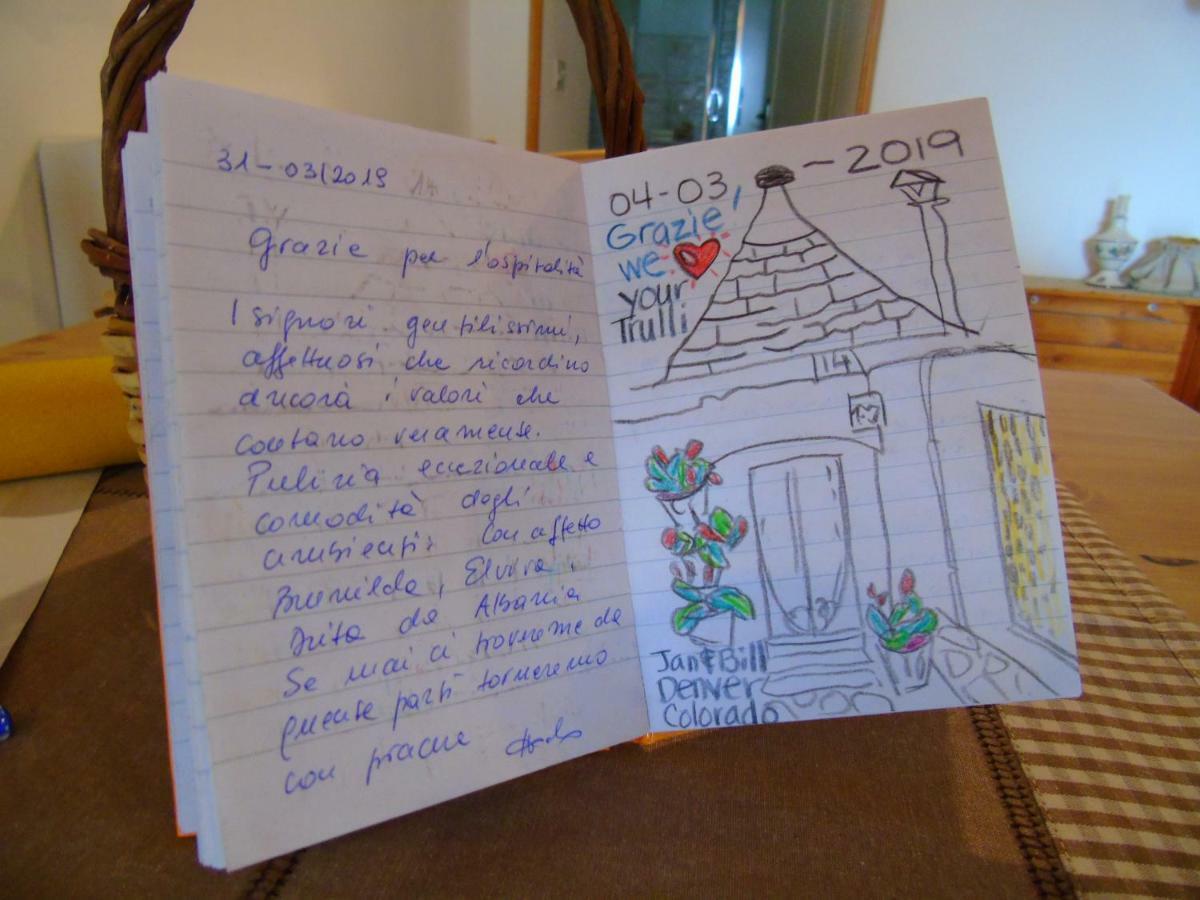 31-03/2019
Grazie per l'ospitalità
I signori gentilissimi,
affettuosi che ricordino
ancora i valori che
contano veramente.
Pulizia eccezionale e
comodità degli
ambienti. Con affetto
Brunilda, Elvira,
Drita da Albania
Se mai ci troveremo da
queste parti torneremo
con piacere
04-03,-2019
Grazie,
we ❤
your
Trulli
14
Jan & Bill
Denver
Colorado